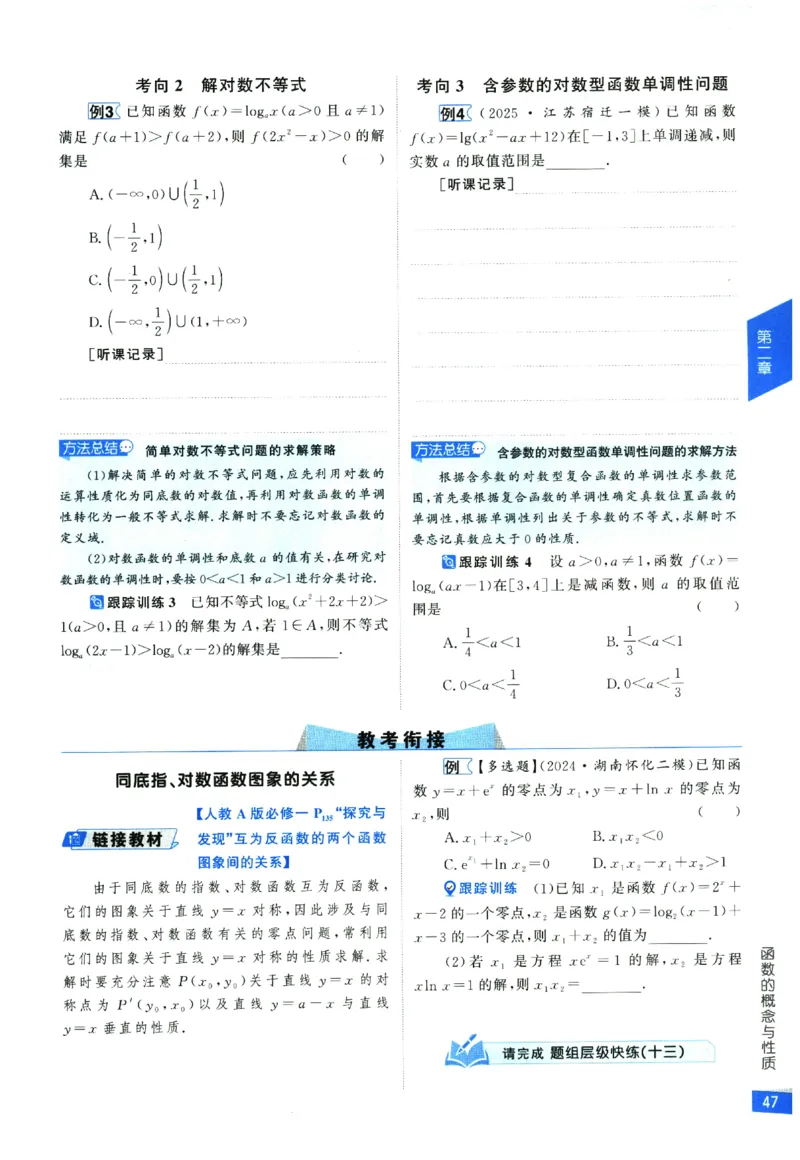 考向 2 解对数不等式
例3 已知函数 f(x)=logₐx(a>0 且 a≠1)
满足 f(a+1)>f(a+2),则 f(2x²-x)>0 的解
集是 ( )
A. (-∞,0)∪(1/2,1)
B. (-1/2,1)
C. (-1/2,0)∪(1/2,1)
D. (-∞,1/2)∪(1,+∞)
[听课记录]
方法总结 简单对数不等式问题的求解策略
(1)解决简单的对数不等式问题,应先利用对数的
运算性质化为同底数的对数值,再利用对数函数的单调
性转化为一般不等式求解.求解时不要忘记对数函数的
定义域.
(2)对数函数的单调性和底数 a 的值有关,在研究对
数函数的单调性时,要按0<a<1和a>1进行分类讨论.
跟踪训练 3 已知不等式 logₐ(x²+2x+2)>
1(a>0,且 a≠1)的解集为 A,若 1∈A,则不等式
logₐ(2x-1)>logₐ(x-2)的解集是______.
考向 3 含参数的对数型函数单调性问题
例4 (2025·江苏宿迁一模)已知函数
f(x)=lg(x²-ax+12)在[-1,3]上单调递减,则
实数 a 的取值范围是______.
[听课记录]
方法总结 含参数的对数型函数单调性问题的求解方法
根据含参数的对数型复合函数的单调性求参数范
围,首先要根据复合函数的单调性确定真数位置函数的
单调性,根据单调性列出关于参数的不等式,求解时不
要忘记真数应大于 0 的性质.
跟踪训练 4 设 a>0,a≠1,函数 f(x)=
logₐ(ax-1)在[3,4]上是减函数,则 a 的取值范
围是 ( )
A. 1/4<a<1 B. 1/3<a<1
C. 0<a<1/4 D. 0<a<1/3
第二章
教考衔接
同底指、对数函数图象的关系
链接教材 【人教 A 版必修一 P₁₃₅“探究与
发现”互为反函数的两个函数
图象间的关系】
由于同底数的指数、对数函数互为反函数,
它们的图象关于直线 y=x 对称,因此涉及与同
底数的指数、对数函数有关的零点问题,常利用
它们的图象关于直线 y=x 对称的性质求解.求
解时要充分注意 P(x₀,y₀)关于直线 y=x 的对
称点为 P′(y₀,x₀)以及直线 y=a-x 与直线
y=x 垂直的性质.
例 【多选题】(2024·湖南怀化二模)已知函
数 y=x+eˣ 的零点为 x₁,y=x+ln x 的零点为
x₂,则 ( )
A. x₁+x₂>0 B. x₁x₂<0
C. e^{x₁}+ln x₂=0 D. x₁x₂-x₁+x₂>1
跟踪训练 (1)已知 x₁ 是函数 f(x)=2ˣ+
x-2 的一个零点,x₂ 是函数 g(x)=log₂(x-1)+
x-3 的一个零点,则 x₁+x₂ 的值为______.
(2)若 x₁ 是方程 xeˣ=1 的解,x₂ 是方程
xln x=1的解,则 x₁x₂=______.
请完成 题组层级快练(十三)
函数的概念与性质
47